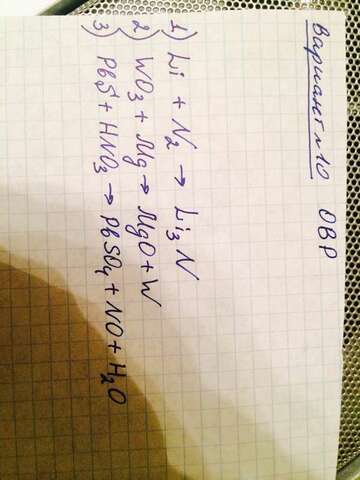 Вариант №10 ОВР
1) Li + N₂ → Li₃N
2) WO₃ + Mg → MgO + W
3) PbS + HNO₃ → PbSO₄ + NO + H₂O